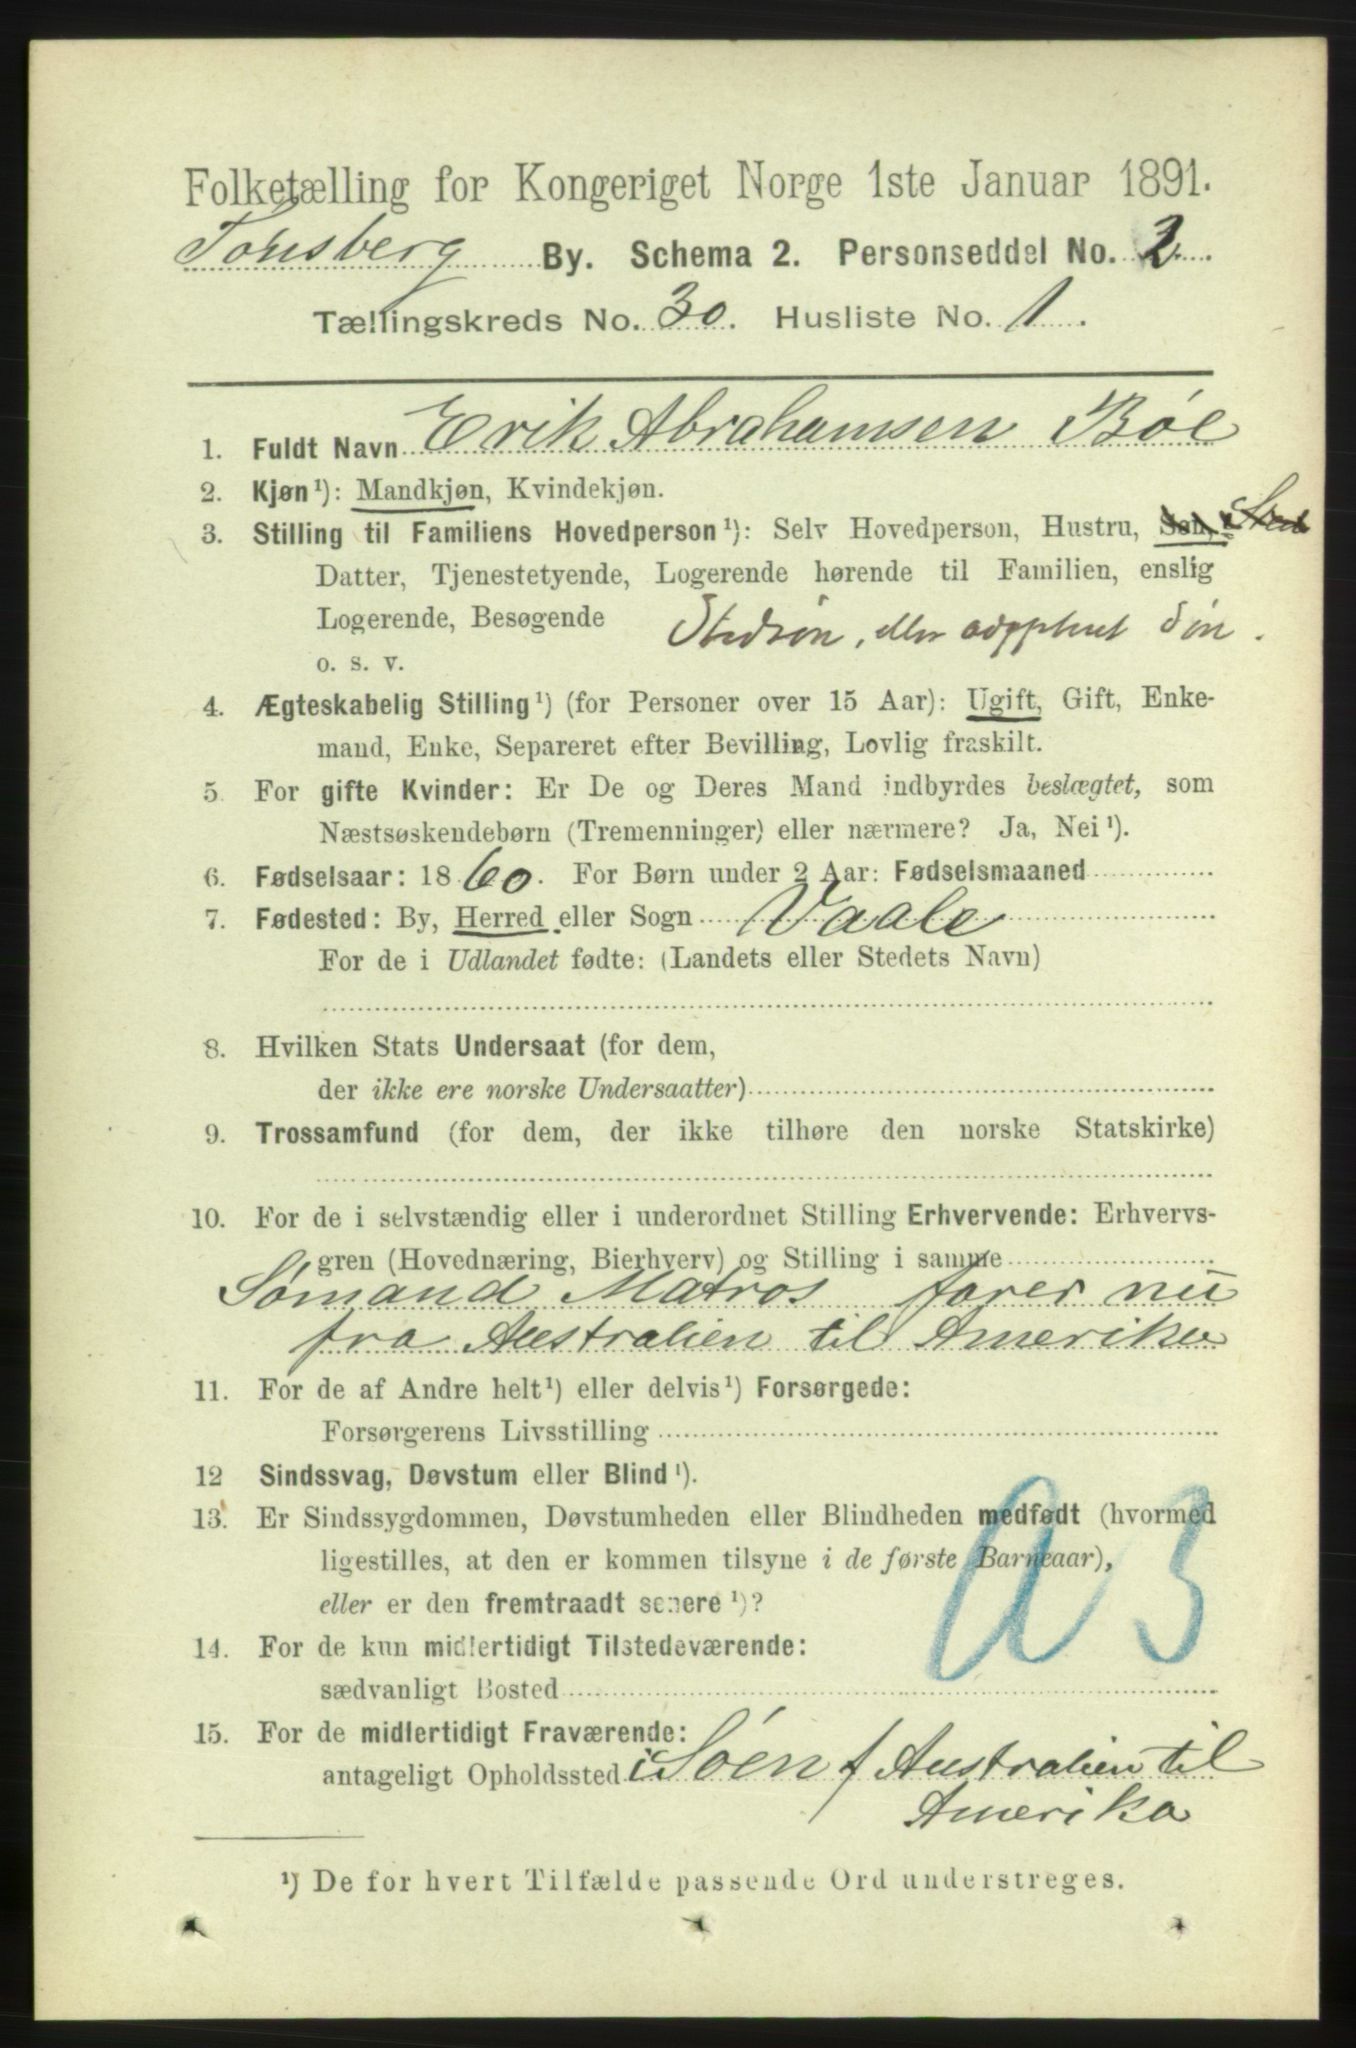 Folketælling for Kongeriget Norge 1ste Januar 1891.
Tønsberg By. Schema 2. Personseddel No. 2.
Tællingskreds No. 30. Husliste No. 1.
1. Fuldt Navn Erik Abrahamsen Bøe
2. Kjøn¹): Mandkjøn, Kvindekjøn.
3. Stilling til Familiens Hovedperson¹): Selv Hovedperson, Hustru, Søn, Sted
Datter, Tjenestetyende, Logerende hørende til Familien, enslig
Logerende, Besøgende Stedsøn, eller adopteret Søn.
o. s. v.
4. Ægteskabelig Stilling¹) (for Personer over 15 Aar): Ugift, Gift, Enke-
mand, Enke, Separeret efter Bevilling, Lovlig fraskilt.
5. For gifte Kvinder: Er De og Deres Mand indbyrdes beslægtet, som
Næstsøskendebørn (Tremenninger) eller nærmere? Ja, Nei¹).
6. Fødselsaar: 1860. For Børn under 2 Aar: Fødselsmaaned
7. Fødested: By, Herred eller Sogn Vaale
For de i Udlandet fødte: (Landets eller Stedets Navn)
8. Hvilken Stats Undersaat (for dem,
der ikke ere norske Undersaatter)
9. Trossamfund (for dem, der ikke tilhøre den norske Statskirke)
10. For de i selvstændig eller i underordnet Stilling Erhvervende: Erhvervs-
gren (Hovednæring, Bierhverv) og Stilling i samme
Sømand Matros farer nu
fra Australien til Amerika
11. For de af Andre helt¹) eller delvis¹) Forsørgede:
Forsørgerens Livsstilling
12 Sindssvag, Døvstum eller Blind¹).
13. Er Sindssygdommen, Døvstumheden eller Blindheden medfødt (hvormed
ligestilles, at den er kommen tilsyne i de første Barneaar),
eller er den fremtraadt senere¹)?
a 3
14. For de kun midlertidigt Tilstedeværende:
sædvanligt Bosted
15. For de midlertidigt Fraværende:
antageligt Opholdssted i Søen f Australien til
Amerika
¹) De for hvert Tilfælde passende Ord understreges.